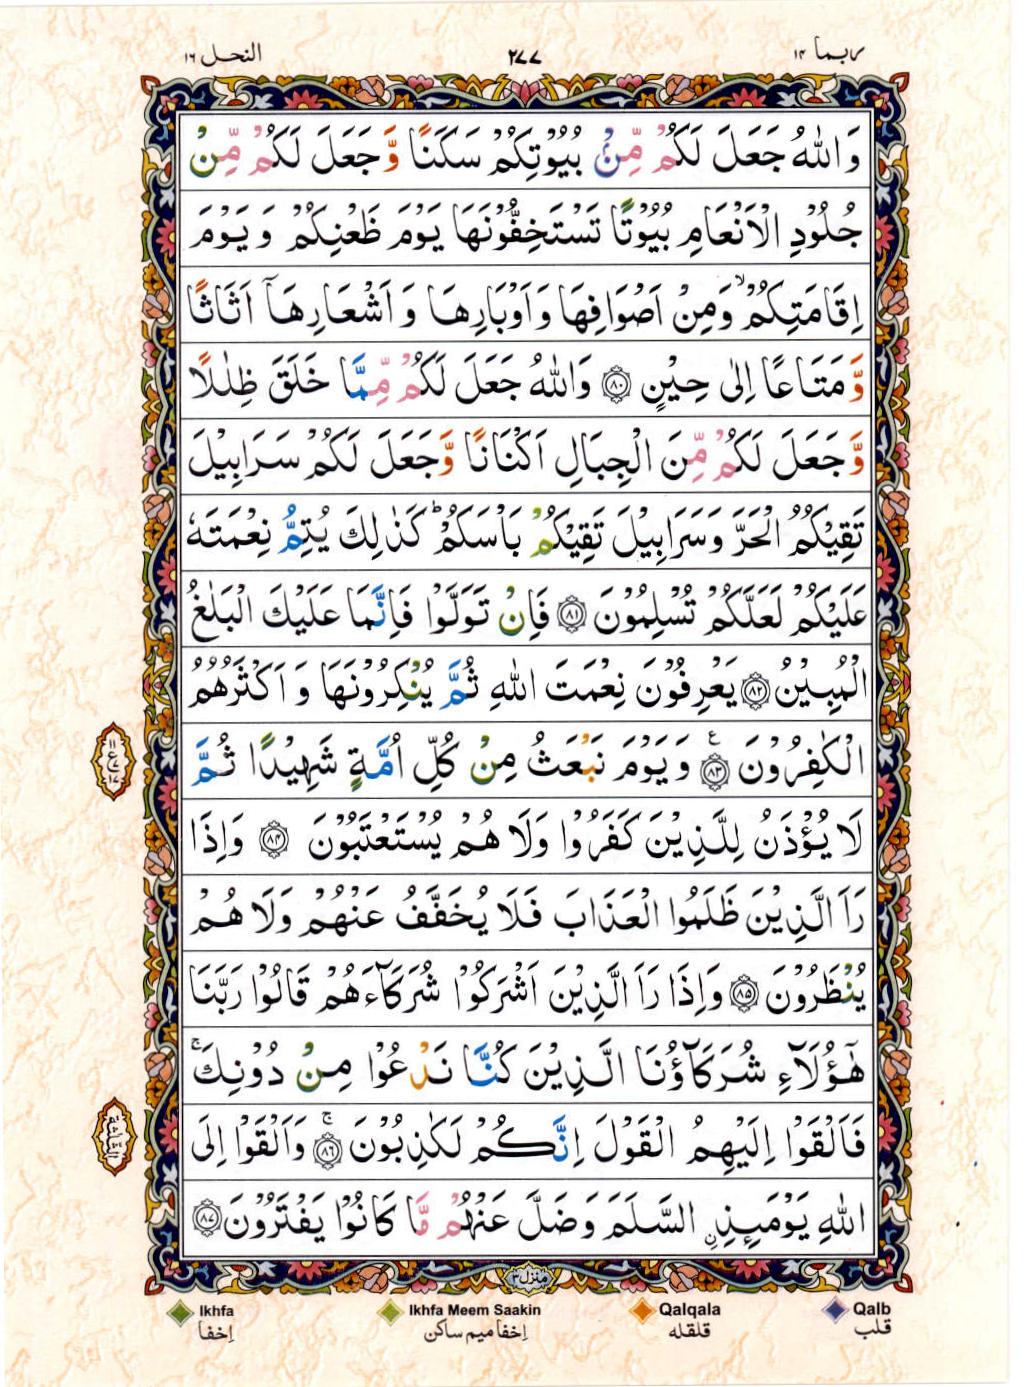 ربما ۱۴
۲۷۷
النحل ۱۶
وَاللّٰهُ جَعَلَ لَكُمْ مِّنْۢ بُيُوْتِكُمْ سَكَنًا وَّجَعَلَ لَكُمْ مِّنْ
جُلُوْدِ الْاَنْعَامِ بُيُوْتًا تَسْتَخِفُّوْنَهَا يَوْمَ ظَعْنِكُمْ وَيَوْمَ
اِقَامَتِكُمْۙ وَمِنْ اَصْوَافِهَا وَاَوْبَارِهَا وَاَشْعَارِهَاۤ اَثَاثًا
وَّمَتَاعًا اِلٰى حِيْنٍ ۝۸۰ وَاللّٰهُ جَعَلَ لَكُمْ مِّمَّا خَلَقَ ظِلٰلًا
وَّجَعَلَ لَكُمْ مِّنَ الْجِبَالِ اَكْنَانًا وَّجَعَلَ لَكُمْ سَرَابِيْلَ
تَقِيْكُمُ الْحَرَّ وَسَرَابِيْلَ تَقِيْكُمْ بَاْسَكُمْؕ كَذٰلِكَ يُتِمُّ نِعْمَتَهٗ
عَلَيْكُمْ لَعَلَّكُمْ تُسْلِمُوْنَ ۝۸۱ فَاِنْ تَوَلَّوْا فَاِنَّمَا عَلَيْكَ الْبَلٰغُ
الْمُبِيْنُ ۝۸۲ يَعْرِفُوْنَ نِعْمَتَ اللّٰهِ ثُمَّ يُنْكِرُوْنَهَا وَاَكْثَرُهُمُ
الْكٰفِرُوْنَ ۝۸۳ ع وَيَوْمَ نَبْعَثُ مِنْ كُلِّ اُمَّةٍ شَهِيْدًا ثُمَّ
لَا يُؤْذَنُ لِلَّذِيْنَ كَفَرُوْا وَلَا هُمْ يُسْتَعْتَبُوْنَ ۝۸۴ وَاِذَا
رَاَ الَّذِيْنَ ظَلَمُوا الْعَذَابَ فَلَا يُخَفَّفُ عَنْهُمْ وَلَا هُمْ
يُنْظَرُوْنَ ۝۸۵ وَاِذَا رَاَ الَّذِيْنَ اَشْرَكُوْا شُرَكَآءَهُمْ قَالُوْا رَبَّنَا
هٰٓؤُلَآءِ شُرَكَآؤُنَا الَّذِيْنَ كُنَّا نَدْعُوْا مِنْ دُوْنِكَۚ
فَاَلْقَوْا اِلَيْهِمُ الْقَوْلَ اِنَّكُمْ لَكٰذِبُوْنَۚ ۝۸۶ وَاَلْقَوْا اِلَى
اللّٰهِ يَوْمَىِٕذِ ۨالسَّلَمَ وَضَلَّ عَنْهُمْ مَّا كَانُوْا يَفْتَرُوْنَ ۝۸۷
الثلثة
منزل ۳
Ikhfa
Ikhfa Meem Saakin
Qalqala
Qalb
إخفا
إخفا ميم ساكن
قلقله
قلب